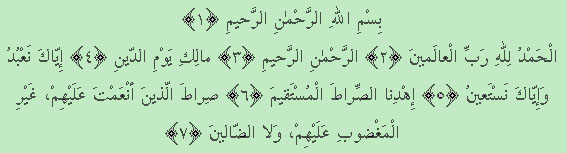 بِسْمِ اللهِ الرَّحْمٰنِ الرَّحيمِ ﴿١﴾
الْحَمْدُ لِلّٰهِ رَبِّ الْعالَمينَ ﴿٢﴾ الرَّحْمٰنِ الرَّحيمِ ﴿٣﴾ مالِكِ يَوْمِ الدّينِ ﴿٤﴾ إِيّاكَ نَعْبُدُ
وَإِيّاكَ نَسْتَعينُ ﴿٥﴾ إِهْدِنا الصِّراطَ الْمُسْتَقيمَ ﴿٦﴾ صِراطَ الَّذينَ أَنْعَمْتَ عَلَيْهِمْ، غَيْرِ
الْمَغْضوبِ عَلَيْهِمْ، وَلا الضّالّينَ ﴿٧﴾